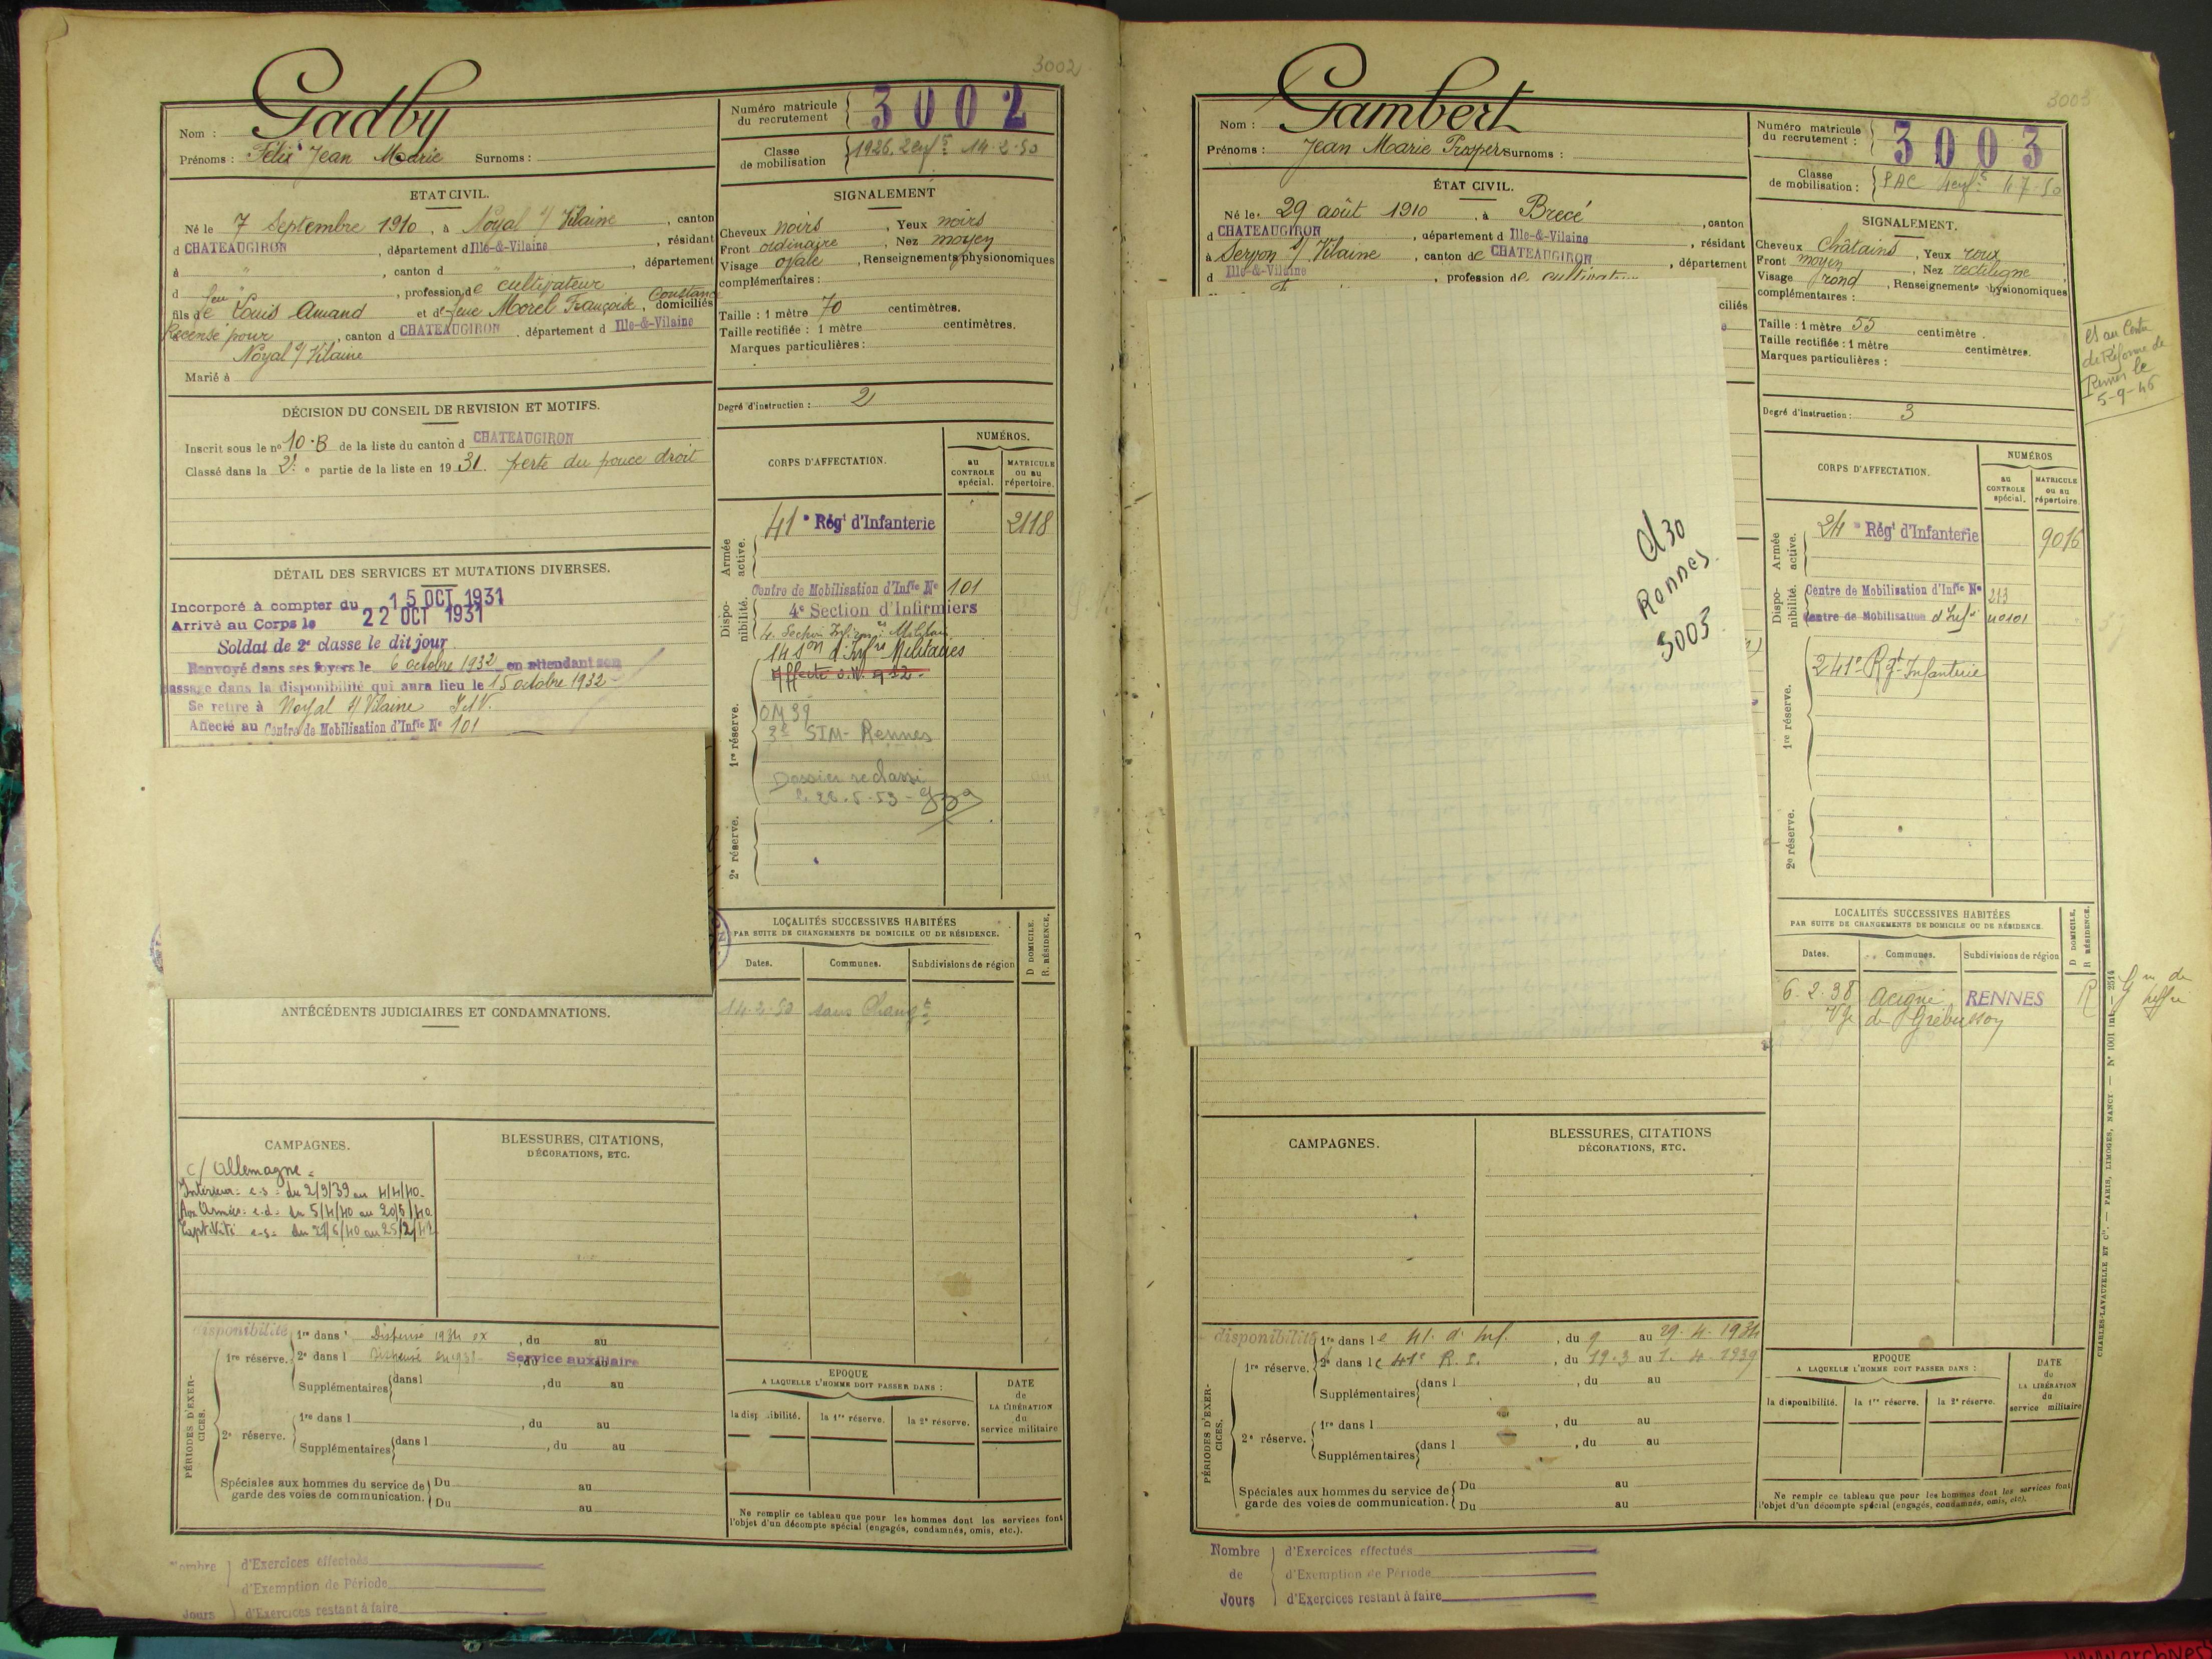 3002
Gadby
Nom :
Prénoms : Félix Jean Marie Surnoms :
Numéro matricule du recrutement 3002
Classe de mobilisation 1926. 2 enfts 14-2-50
ETAT CIVIL.
Né le 7 Septembre 1910, à Noyal s/ Vilaine, canton
d CHATEAUGIRON, département d Ille-&-Vilaine, résidant
à " , canton d " , département
d , profession de cultivateur
fils de feu Louis Amand et de feue Morel Françoise, Constance domiciliés
Recensé pour , canton d CHATEAUGIRON . département d Ille-&-Vilaine
Noyal s/ Vilaine
Marié à
SIGNALEMENT
Cheveux noirs , Yeux noirs
Front ordinaire , Nez moyen
Visage ovale , Renseignements physionomiques
complémentaires :
Taille : 1 mètre 70 centimètres.
Taille rectifiée : 1 mètre centimètres.
Marques particulières :
Degré d'instruction : 2
DÉCISION DU CONSEIL DE REVISION ET MOTIFS.
Inscrit sous le n° 10-B de la liste du canton d CHATEAUGIRON
Classé dans la 2e partie de la liste en 1931. perte du pouce droit
DÉTAIL DES SERVICES ET MUTATIONS DIVERSES.
Incorporé à compter du 15 OCT 1931
Arrivé au Corps le 22 OCT 1931
Soldat de 2e classe le dit jour
Renvoyé dans ses foyers le 6 octobre 1932 en attendant son
passage dans la disponibilité qui aura lieu le 15 octobre 1932
Se retire à Noyal s/ Vilaine I et V.
Affecté au Centre de Mobilisation d'Infie N° 101
CORPS D'AFFECTATION.
NUMÉROS.
au CONTROLE spécial.
MATRICULE ou au répertoire.
Armée active.
41e Régt d'Infanterie 2118
Disponibilité.
Centre de Mobilisation d'Infie N° 101
4e Section d'Infirmiers
4. Section Infirmiers Militaires
14 Son d'Infres Militaires
1re réserve.
Affecté
OM 39
3e SIM - Rennes
Dossier reclassé
le 28.5.53
2e réserve.
LOCALITÉS SUCCESSIVES HABITÉES
PAR SUITE DE CHANGEMENTS DE DOMICILE OU DE RÉSIDENCE.
Dates. Communes. Subdivisions de région
D DOMICILE. R. RÉSIDENCE.
14-2-50 sans Changt
ANTÉCÉDENTS JUDICIAIRES ET CONDAMNATIONS.
CAMPAGNES.
c/ Allemagne =
Intérieur = c.s = du 2/9/39 au 4/4/40.
Aux Armées = c.d = du 5/4/40 au 20/6/40
Captivité c-s = du 21/6/40 au 25/2/42
BLESSURES, CITATIONS,
DÉCORATIONS, ETC.
PÉRIODES D'EXERCICES.
disponibilité 1re dans Dispensé 1934 , du au
1re réserve. 2e dans l , du au
Service auxiliaire
Supplémentaires dans l , du au
2e réserve. 1re dans l , du au
Supplémentaires dans l , du au
Spéciales aux hommes du service de garde des voies de communication. Du au
Du au
EPOQUE
A LAQUELLE L'HOMME DOIT PASSER DANS :
la disponibilité. la 1re réserve. la 2e réserve.
DATE de LA LIBÉRATION du service militaire
Ne remplir ce tableau que pour les hommes dont les services font
l'objet d'un décompte spécial (engagés, condamnés, omis, etc.).
Nombre d'Exercices effectués
d'Exemption de Période
Jours d'Exercices restant à faire
3003
Gambert
Nom :
Prénoms : Jean Marie Prosper Surnoms :
Numéro matricule du recrutement : 3003
Classe de mobilisation : PAC 4 enfts 4 7-50
ÉTAT CIVIL.
Né le 29 août 1910 , à Brecé , canton
d CHATEAUGIRON , département d Ille-&-Vilaine , résidant
à Servon s/ Vilaine , canton de CHATEAUGIRON , département
d Ille-&-Vilaine , profession de cultivat
ciliés
SIGNALEMENT.
Cheveux Châtains , Yeux roux
Front moyen , Nez rectiligne
Visage rond , Renseignements hysionomiques
complémentaires :
Taille : 1 mètre 55 centimètre .
Taille rectifiée : 1 mètre centimètres.
Marques particulières :
Degré d'instruction : 3
et au Centre
de Réforme de
Rennes le
5-9-46
Cl 30
Rennes
3003
CORPS D'AFFECTATION.
NUMÉROS
au CONTROLE spécial.
MATRICULE ou au répertoire.
Armée active.
24e Régt d'Infanterie 9016
Disponibilité.
Centre de Mobilisation d'Infie N° 213
Centre de Mobilisation d'Infie n°101
1re réserve.
241e Rgt Infanterie
2e réserve.
LOCALITÉS SUCCESSIVES HABITÉES
PAR SUITE DE CHANGEMENTS DE DOMICILE OU DE RÉSIDENCE.
Dates. Communes. Subdivisions de région
D DOMICILE. R RÉSIDENCE.
6.2.38 Acigné RENNES R
Vge de Grébusson
CAMPAGNES.
BLESSURES, CITATIONS
DÉCORATIONS, ETC.
PÉRIODES D'EXERCICES.
disponibilité 1re dans le 41. d'Inf. , du 9 au 29.4.1934
1re réserve. 2e dans le 41e R.I. , du 19.3 au 1.4.1939
Supplémentaires dans l , du au
2e réserve. 1re dans l , du au
Supplémentaires dans l , du au
Spéciales aux hommes du service de garde des voies de communication. Du au
Du au
EPOQUE
A LAQUELLE L'HOMME DOIT PASSER DANS :
la disponibilité. la 1re réserve. la 2e réserve.
DATE de LA LIBÉRATION du service militaire
Ne remplr ce tableau que pour les hommes dont les services font
l'objet d'un décompte spécial (engagés, condamnés, omis, etc).
CHARLES-LAVAUZELLE ET Cie. — PARIS, LIMOGES, NANCY — N° 1001 int — 2514
Nombre d'Exercices effectués
de d'Exemption de Période
Jours d'Exercices restant à faire